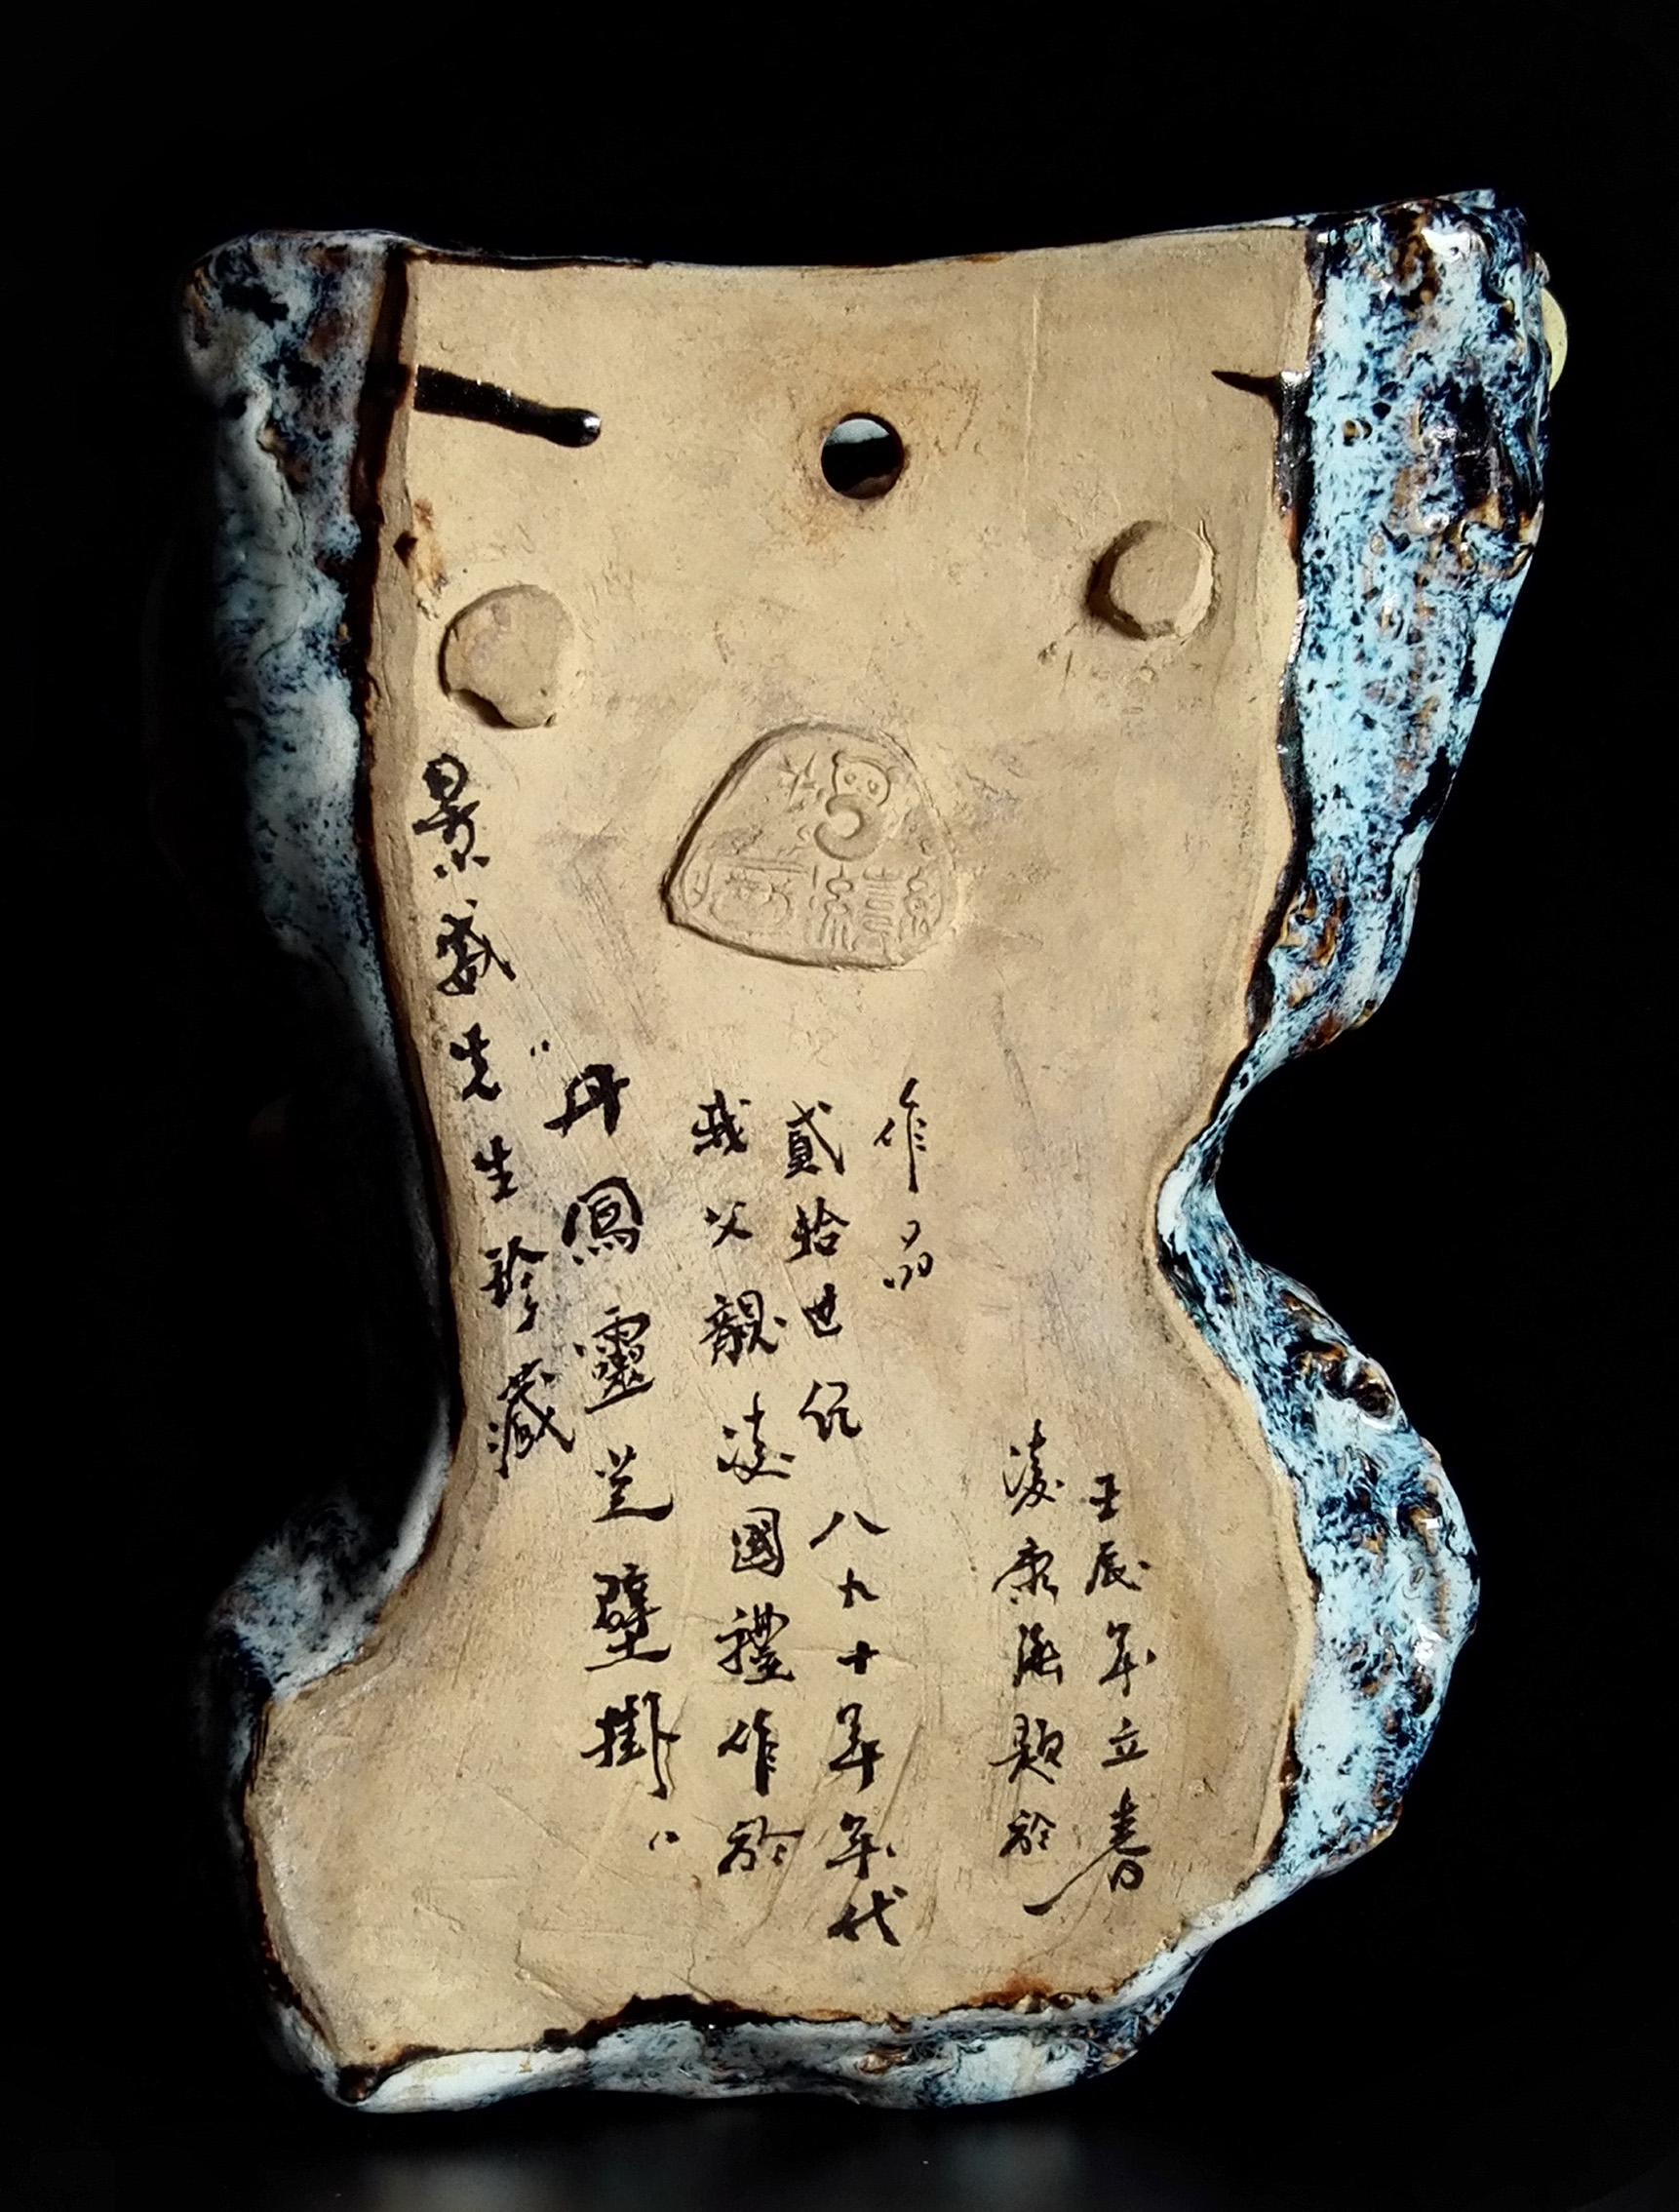 景先生珍藏
"丹鳳靈芝壁掛"
我父親凌國禮作於
貳拾世紀八九十年年代
作品
凌題於
壬辰年立春